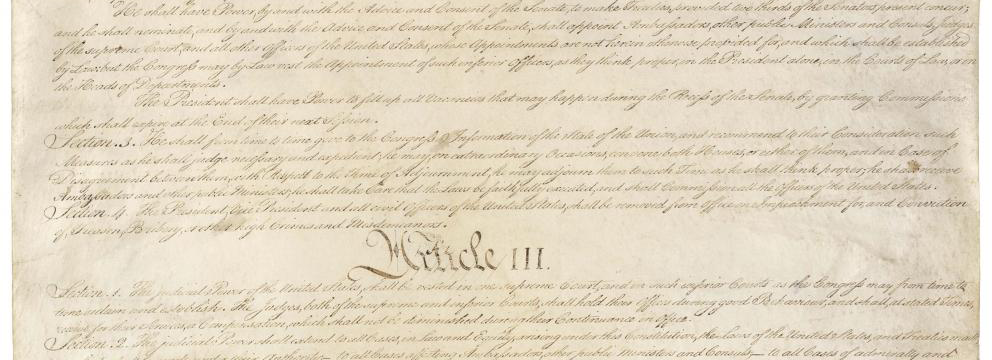 He shall have Power, by and with the Advice and Consent of the Senate, to make Treaties, provided two thirds of the Senators present concur;
and he shall nominate, and by and with the Advice and Consent of the Senate, shall appoint Ambassadors, other public Ministers and Consuls, Judges
of the supreme Court, and all other Officers of the United States, whose Appointments are not herein otherwise provided for, and which shall be established
by Law: but the Congress may by Law vest the Appointment of such inferior Officers, as they think proper, in the President alone, in the Courts of Law, or in
the Heads of Departments.
The President shall have Power to fill up all Vacancies that may happen during the Recess of the Senate, by granting Commissions
which shall expire at the End of their next Session.
Section. 3. He shall from time to time give to the Congress Information of the State of the Union, and recommend to their Consideration such
Measures as he shall judge necessary and expedient; he may, on extraordinary Occasions, convene both Houses, or either of them, and in Case of
Disagreement between them, with Respect to the Time of Adjournment, he may adjourn them to such Time as he shall think proper; he shall receive
Ambassadors and other public Ministers; he shall take Care that the Laws be faithfully executed, and shall Commission all the Officers of the United States.
Section. 4. The President, Vice President and all civil Officers of the United States, shall be removed from Office on Impeachment for, and Conviction
of, Treason, Bribery, or other high Crimes and Misdemeanors.
Article III.
Section. 1. The judicial Power of the United States, shall be vested in one supreme Court, and in such inferior Courts as the Congress may from time to
time ordain and establish. The Judges, both of the supreme and inferior Courts, shall hold their Offices during good Behaviour, and shall, at stated Times,
receive for their Services, a Compensation, which shall not be diminished during their Continuance in Office.
Section. 2. The judicial Power shall extend to all Cases, in Law and Equity, arising under this Constitution, the Laws of the United States, and Treaties made,
their Authority;—to all Cases affecting Ambassadors, other public Ministers and Consuls;—to all Cases of admiralty and